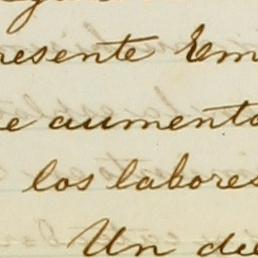 resente Em
e aumento
los labores
Un de